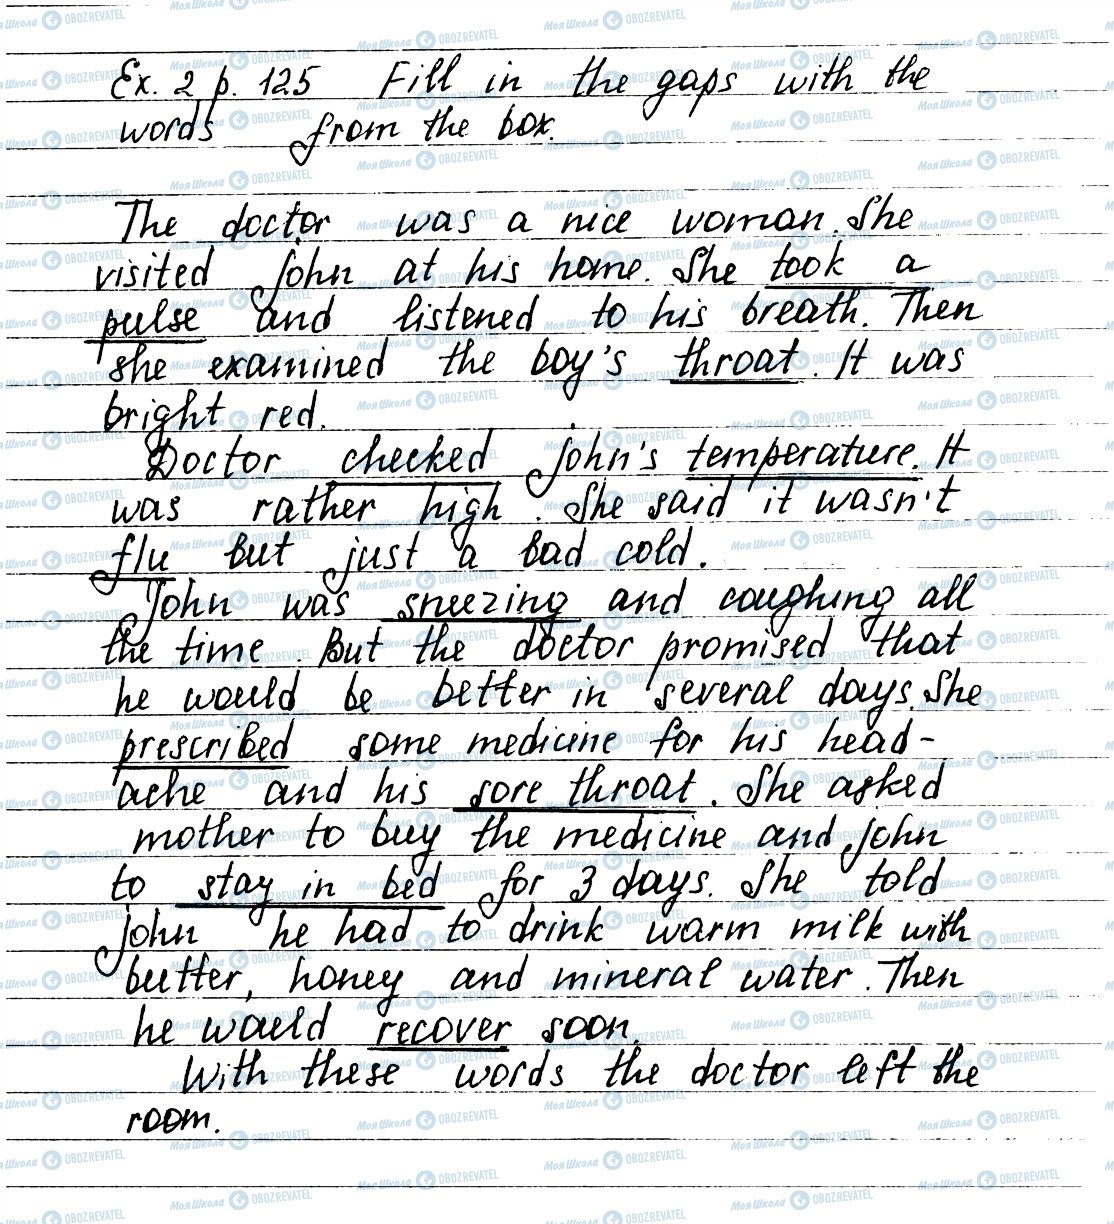 Ex. 2 p. 125 Fill in the gaps with the
words from the box.
The doctor was a nice woman. She
visited John at his home. She took a
pulse and listened to his breath. Then
she examined the boy's throat. It was
bright red.
Doctor checked John's temperature. It
was rather high. She said it wasn't
flu but just a bad cold.
John was sneezing and coughing all
the time. But the doctor promised that
he would be better in several days. She
prescribed some medicine for his head-
ache and his sore throat. She asked
mother to buy the medicine and John
to stay in bed for 3 days. She told
John he had to drink warm milk with
butter, honey and mineral water. Then
he would recover soon.
With these words the doctor left the
room.